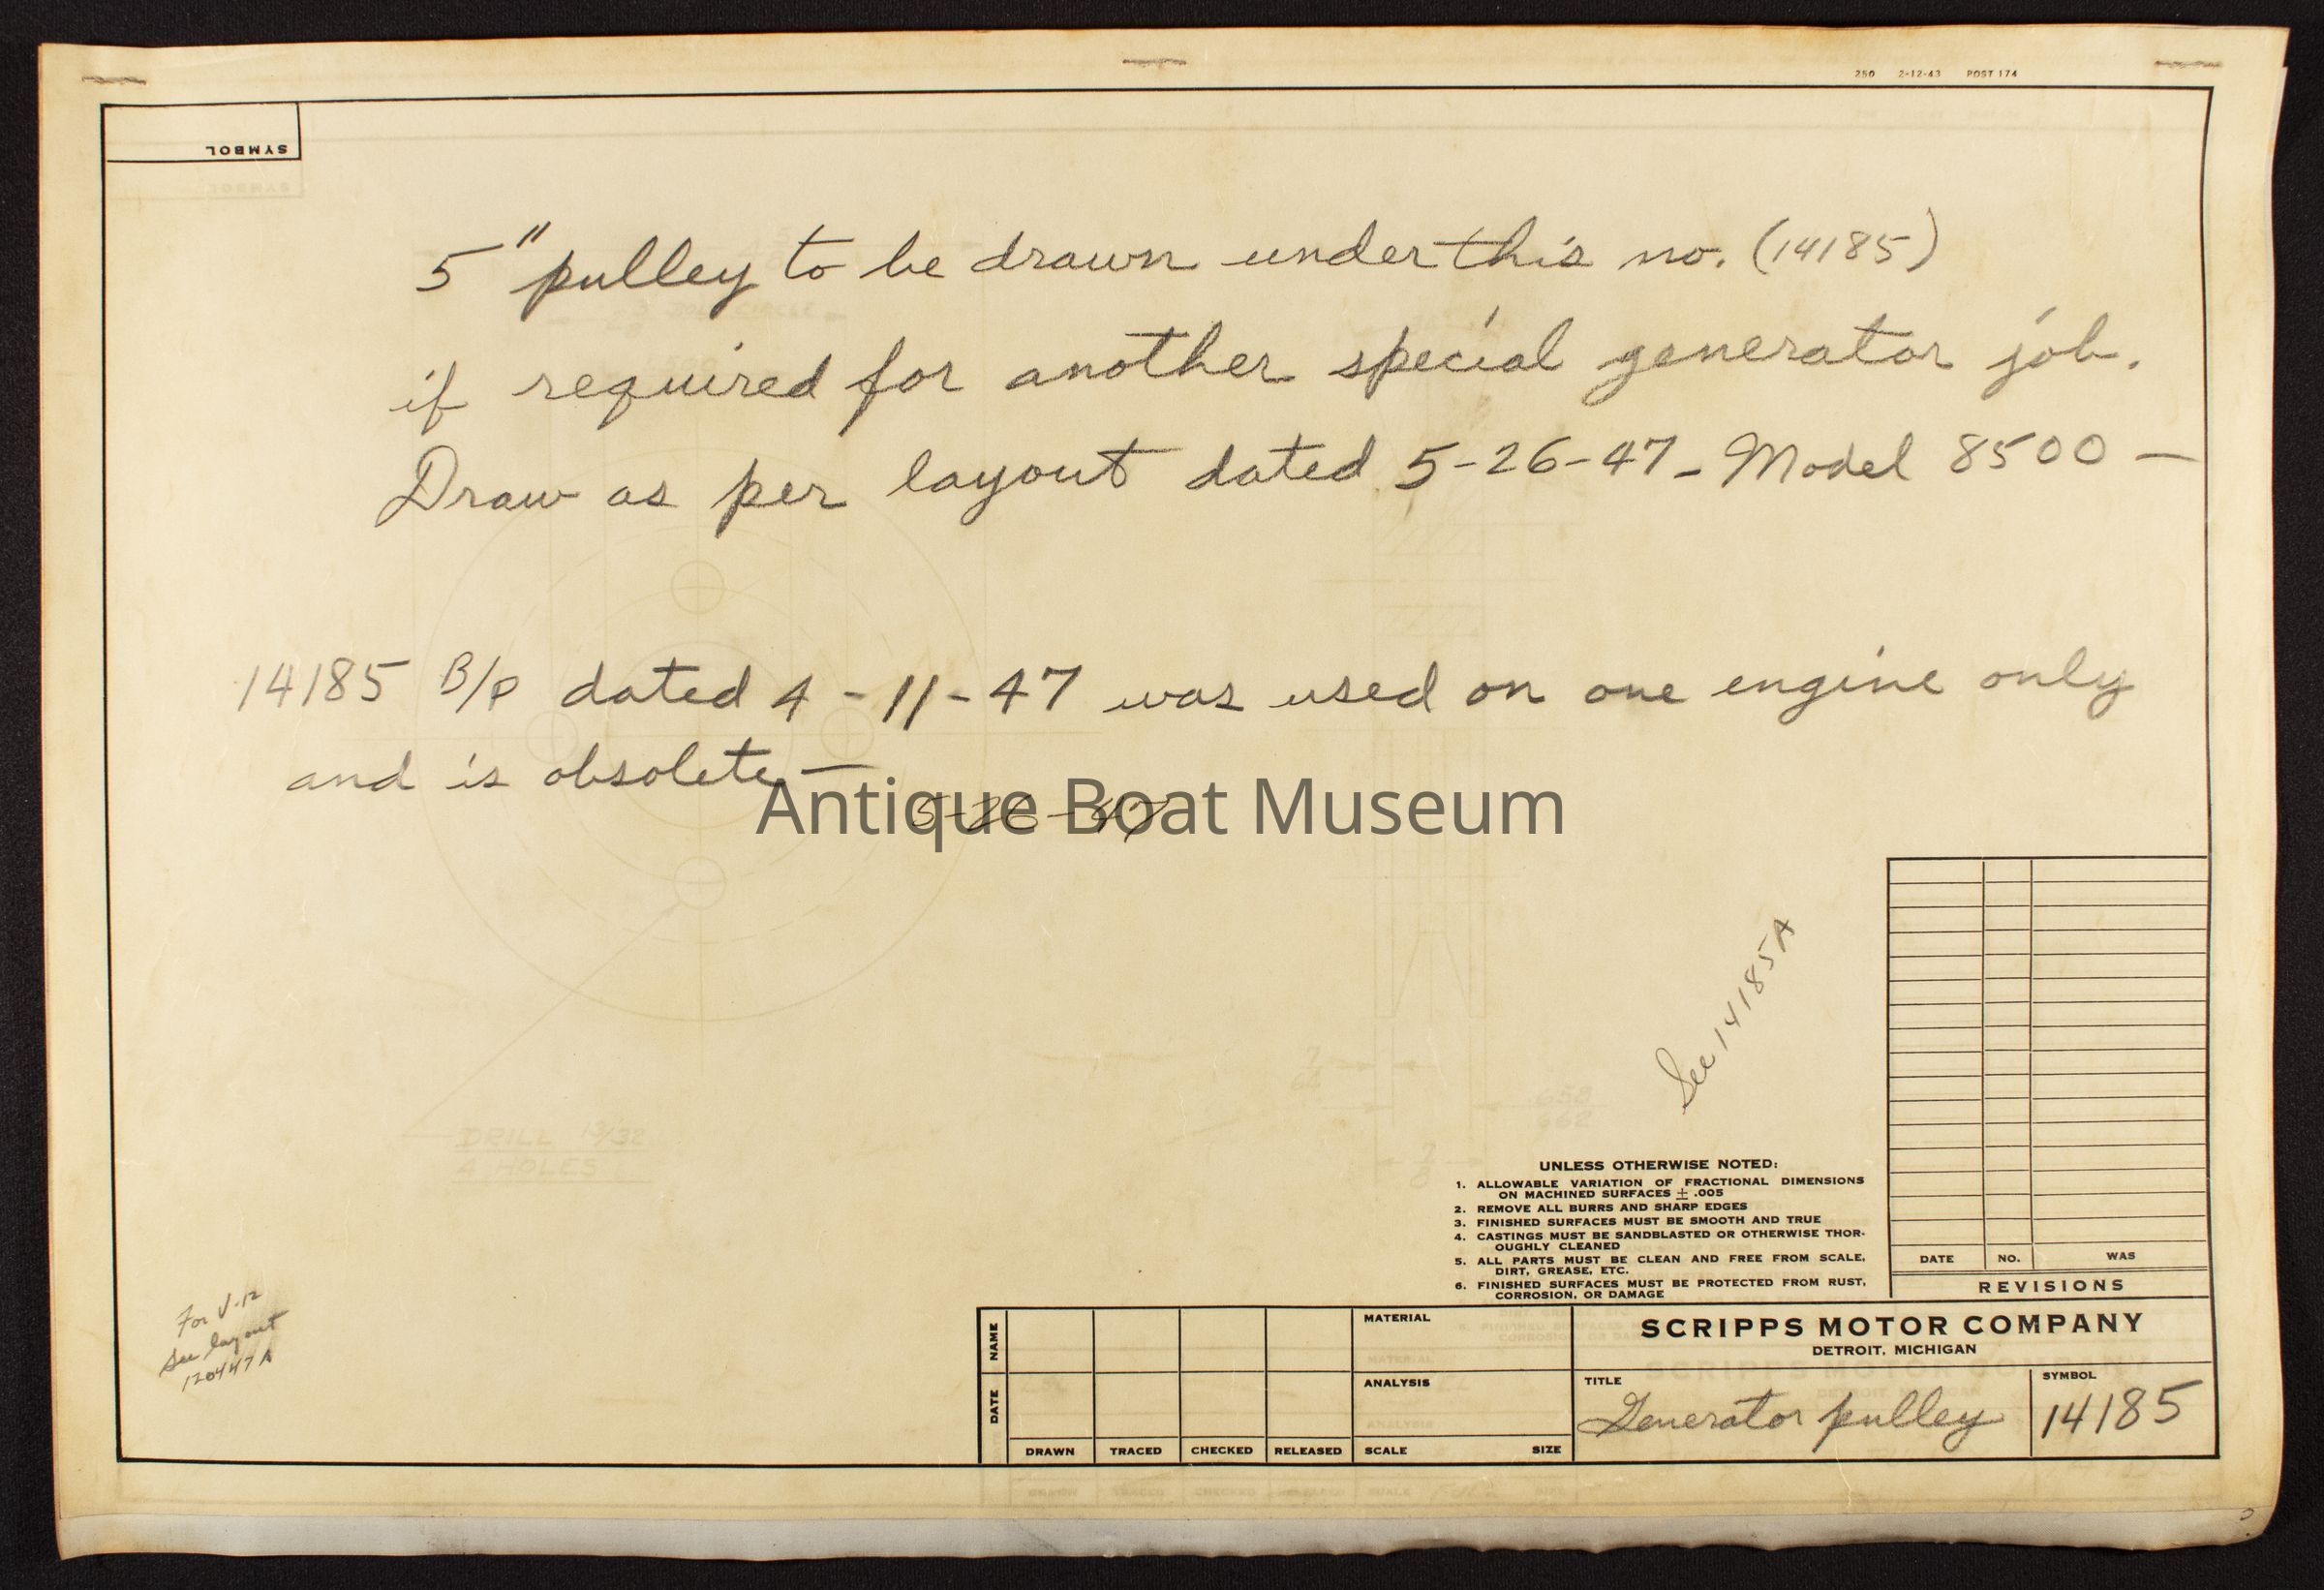 250 2-12-43 POST 174
SYMBOL
5" pulley to be drawn under this no. (14185)
if required for another special generator job.
Draw as per layout dated 5-26-47 - Model 8500 —
14185 B/P dated 4-11-47 was used on one engine only
and is obsolete —
5-26-47
Antique Boat Museum
See 14185A
UNLESS OTHERWISE NOTED:
1. ALLOWABLE VARIATION OF FRACTIONAL DIMENSIONS
ON MACHINED SURFACES ± .005
2. REMOVE ALL BURRS AND SHARP EDGES
3. FINISHED SURFACES MUST BE SMOOTH AND TRUE
4. CASTINGS MUST BE SANDBLASTED OR OTHERWISE THOR-
OUGHLY CLEANED
5. ALL PARTS MUST BE CLEAN AND FREE FROM SCALE,
DIRT, GREASE, ETC.
6. FINISHED SURFACES MUST BE PROTECTED FROM RUST,
CORROSION, OR DAMAGE
DATE NO. WAS
REVISIONS
DRILL 13/32
4 HOLES
For V-12
See layout
120447A
NAME
DATE
DRAWN TRACED CHECKED RELEASED
MATERIAL
ANALYSIS
SCALE SIZE
SCRIPPS MOTOR COMPANY
DETROIT, MICHIGAN
TITLE
Generator pulley
SYMBOL
14185